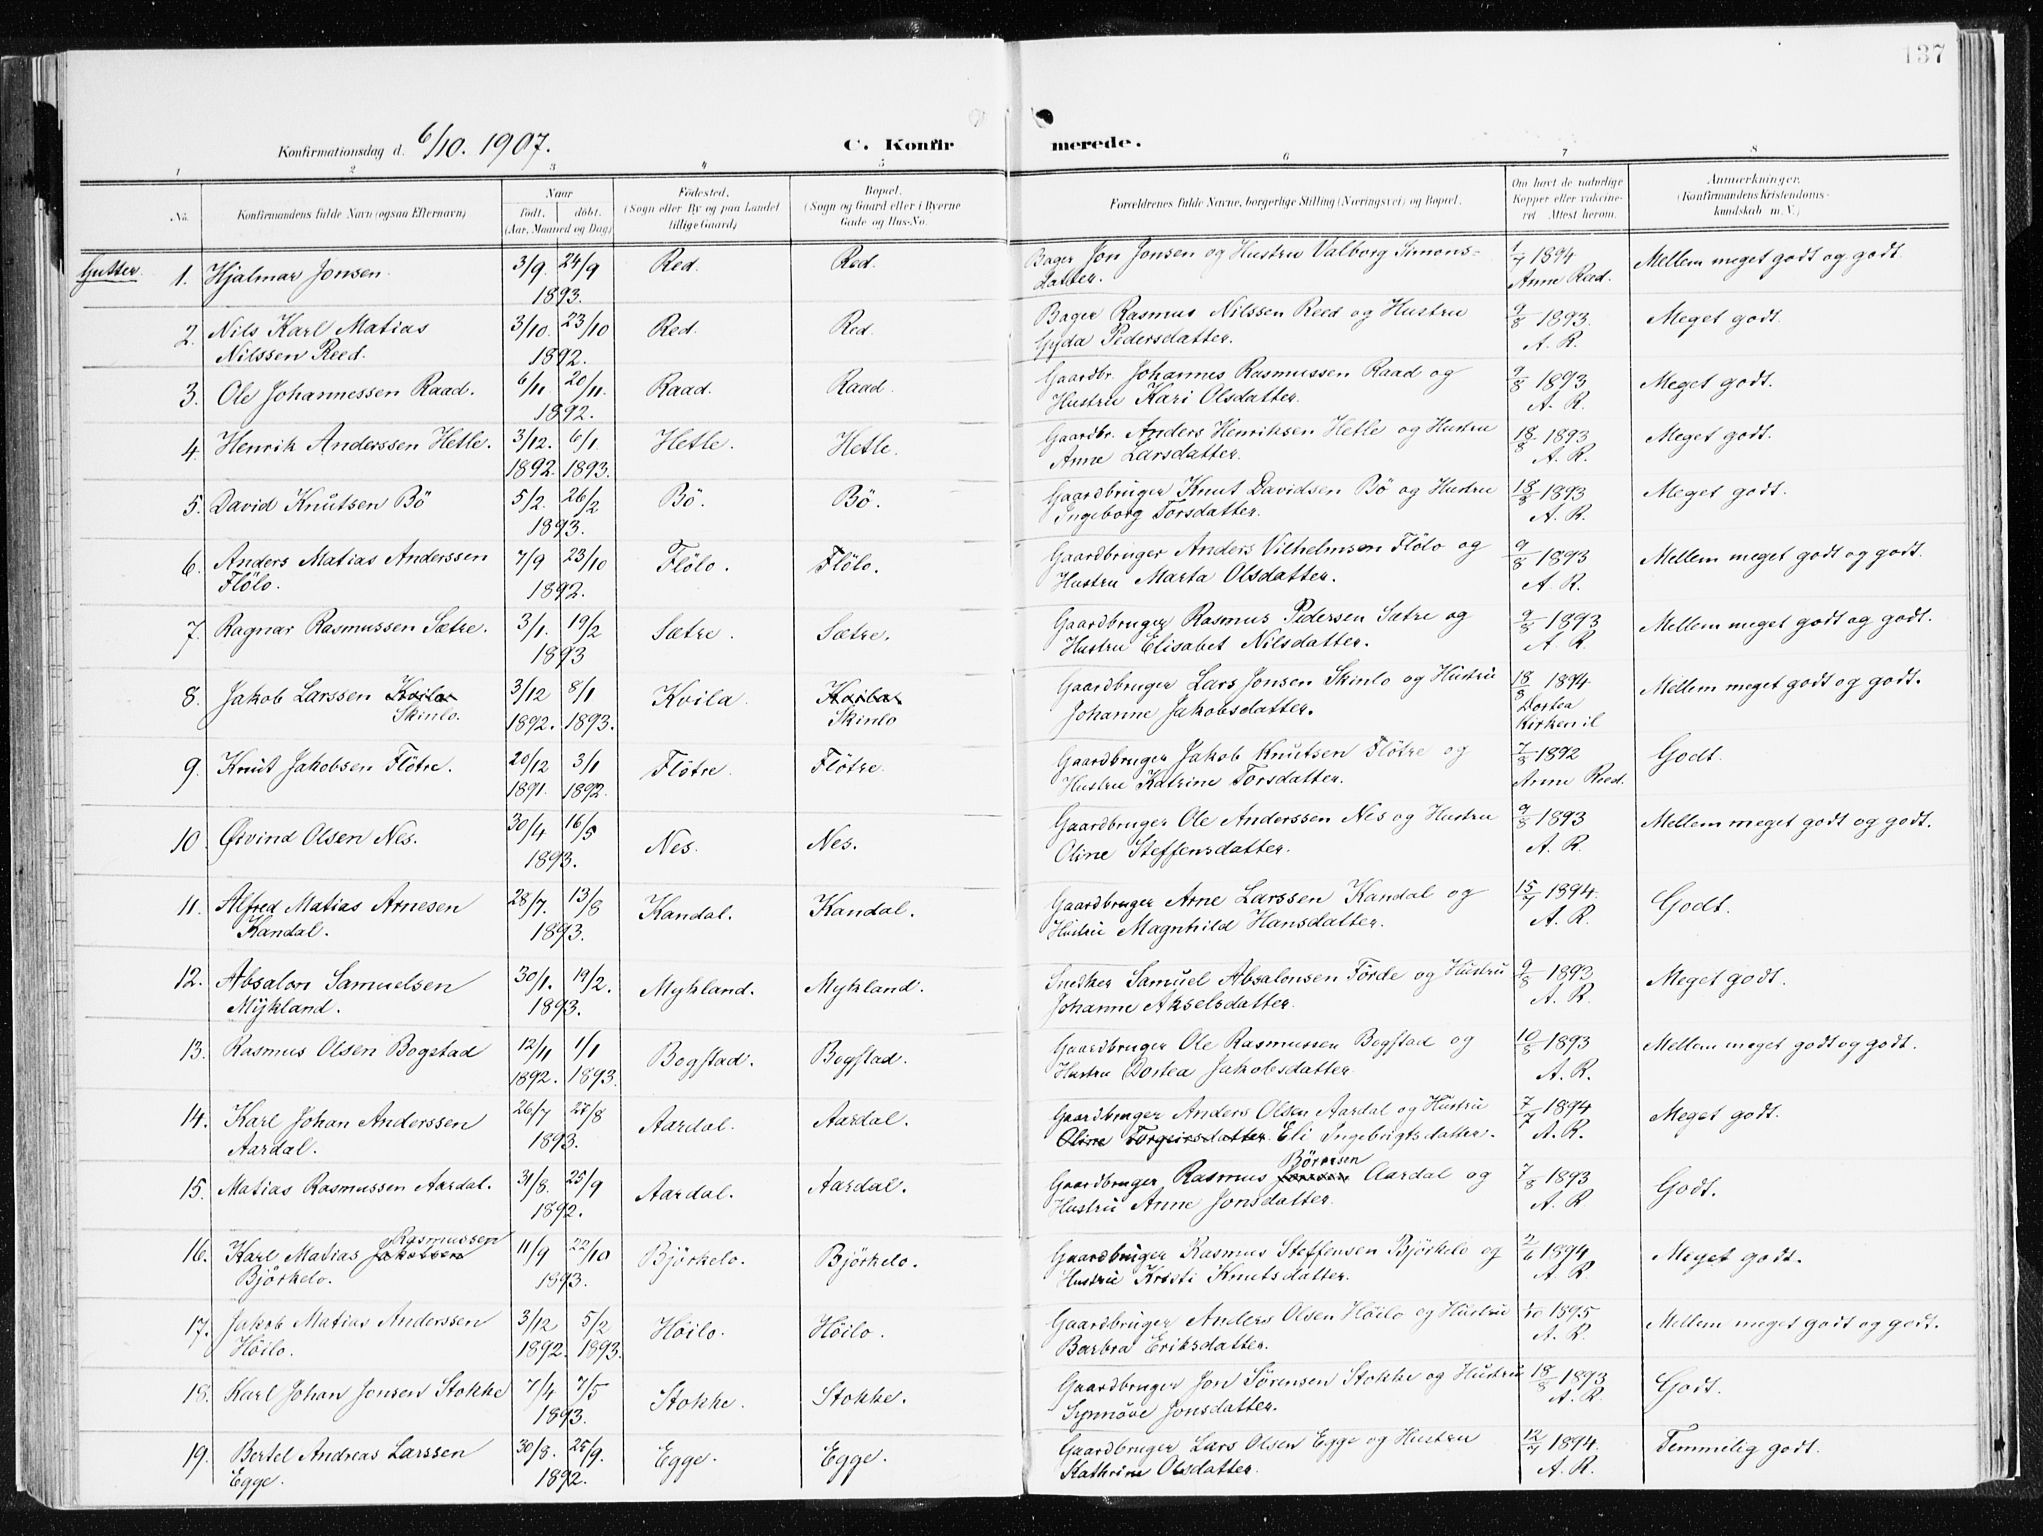 137
Konfirmationsdag d. 6/10. 1907. C. Konfirmerede.
1 2 3 4 5 6 7 8
No. Konfirmandens fulde Navn (ogsaa Efternavn) Naar födt, döbt. (Aar, Maaned og Dag) Födested. (Sogn eller By og paa Landet tillige Gaard) Bopæl. (Sogn og Gaard eller i Byerne Gade og Hus-No. Forældrenes fulde Navne, borgerlige Stilling (Næringsvei) og Bopæl. Om havt de naturlige Kopper eller vakcineret Attest herom. Anmerkninger. (Konfirmandens Kristendomskundskab m. V.)
Gutter.
1. Hjalmar Jonsen 3/9. 24/9 Red. Red. Bager Jon Jonsen og Hustru Valborg Simons- 1/7 1894 Mellem meget godt og godt.
1893. datter. Anne Reed.
2. Nils Karl Matias 3/10. 23/10 Red. Red. Bager Rasmus Nilssen Reed og Hustru 9/8 1893. Meget godt.
Nilssen Reed. 1892. Gyda Pedersdatter. A. R.
3. Ole Johannessen Raad. 6/11 20/11. Raad. Raad. Gaardbr. Johannes Rasmussen Raad og 9/8 1893 Meget godt.
1892. Hustru Kari Olsdatter. A. R.
4. Henrik Anderssen Hetle. 3/12. 6/1 Hetle. Hetle. Gaardbr. Anders Henriksen Hetle og Hustru 18/8 1893 Meget godt.
1892. 1893. Anne Larsdatter. A. R.
5. David Knutsen Bö 5/2. 26/2 Bö. Bö. Gaardbruger Knut Davidsen Bö og Hustru 18/8 1893 Meget godt.
1893. Ingeborg Torsdatter. A. R.
6. Anders Matias Anderssen 7/9 23/10 Flölo. Flölo. Gaardbruger Anders Vilhelmsen Flölo og 9/8 1893 Mellem meget godt og godt.
Flölo. 1892. Hustru Marta Olsdatter. A. R.
7. Ragnar Rasmussen Sætre. 3/1. 19/2 Sætre. Sætre. Gaardbruger Rasmus Pedersen Sætre og 9/8 1893 Mellem meget godt og godt.
1893 Hustru Elisabet Nilsdatter. A. R.
8. Jakob Larssen Kvila 3/12 8/1 Kvila. Kvila. Gaardbruger Lars Jonsen Skinlo og Hustru 18/8 1894 Mellem meget godt og godt.
Skinlo. 1892. 1893. Skinlo Johanne Jakobsdatter. Dortea
Kirkeneil
9. Knut Jakobsen Flötre. 20/12 3/1 Flötre. Flötre. Gaardbruger Jakob Knutsen Flötre og 7/8 1892 Godt.
1891. 1892. Hustru Katrine Torsdatter. Anne Reed.
10. Øivind Olsen Nes. 30/4 16/5 Nes. Nes. Gaardbruger Ole Anderssen Nes og Hustru 9/8 1893 Mellem meget godt og godt.
1893. Oline Steffensdatter. A. R.
11. Alfred Matias Arnesen 28/7. 13/8 Kandal. Kandal. Gaardbruger Arne Larssen Kandal og 15/7 1894. Godt.
Kandal. 1893. Hustru Magnhild Hansdatter. A. R.
12. Absalon Samuelsen 30/1. 19/2. Mykland. Mykland. Snedker Samuel Absalonsen Förde og Hustru 9/8 1893 Meget godt.
Mykland. 1893. Johanne Akselsdatter. A. R.
13. Rasmus Olsen Bogstad 12/11 1/1 Bogstad. Bogstad. Gaardbruger Ole Rasmussen Bogstad og 10/8 1893 Mellem meget godt og godt.
1892. 1893. Hustru Dortea Jakobsdatter A. R.
14. Karl Johan Anderssen 26/7 27/8 Aardal. Aardal. Gaardbruger Anders Olsen Aardal og Hustru 7/7 1894 Meget godt.
Aardal. 1893. Oline Torgeirsdatter. Eli Ingebrigtsdatter. A. R.
15. Matias Rasmussen Aardal. 31/8. 25/9 Aardal. Aardal. Gaardbruger Rasmus Börresen Aardal og 7/8 1893 Godt.
1892. Hustru Anne Jonsdatter. A. R.
16. Karl Matias Jakobsen Rasmussen 11/9 22/10 Björkelo. Björkelo. Gaardbruger Rasmus Steffensen Björkelo og 2/6 1894 Meget godt.
Björkelo. 1893. Hustru Kristi Knutsdatter. A. R.
17. Jakob Matias Anderssen 3/12 5/2 Höilo. Höilo. Gaardbruger Anders Olsen Höilo og Hustru 1/10 1895 Mellem meget godt og godt.
Höilo. 1892. 1893. Barbra Eriksdatter. A. R.
18. Karl Johan Jonsen Stokke 7/4 7/5 Stokke. Stokke. Gaardbruger Jon Sörensen Stokke og Hustru 18/8 1893 Godt.
1893. Synnöve Jonsdatter. A. R.
19. Bertel Andreas Larssen 30/8. 25/9. Egge. Egge. Gaardbruger Lars Olsen Egge og Hustru 12/7 1894. Temmelig godt.
Egge. 1892. Kathrine Olsdatter. A. R.